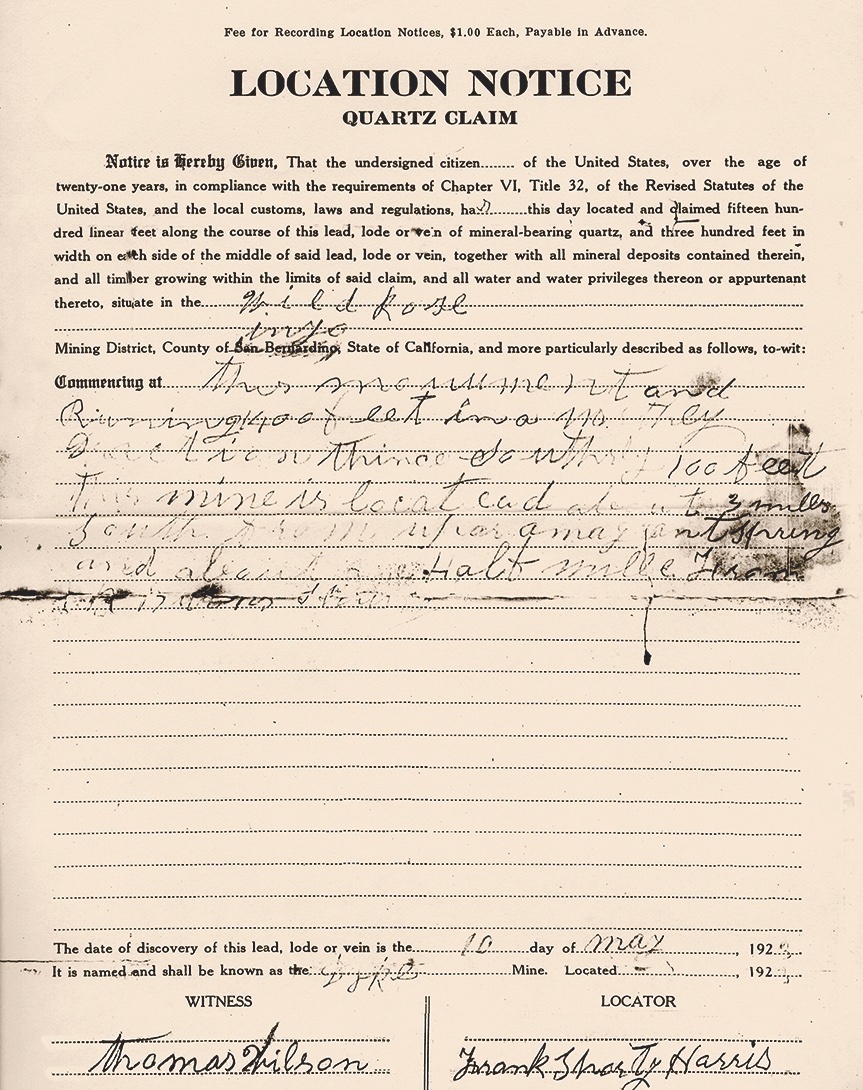 Fee for Recording Location Notices, $1.00 Each, Payable in Advance.
LOCATION NOTICE
QUARTZ CLAIM
Notice is Hereby Given, That the undersigned citizen........ of the United States, over the age of
twenty-one years, in compliance with the requirements of Chapter VI, Title 32, of the Revised Statutes of the
United States, and the local customs, laws and regulations, has this day located and claimed fifteen hun-
dred linear feet along the course of this lead, lode or vein of mineral-bearing quartz, and three hundred feet in
width on each side of the middle of said lead, lode or vein, together with all mineral deposits contained therein,
and all timber growing within the limits of said claim, and all water and water privileges thereon or appurtenant
thereto, situate in the Wild Rose
inyo
Mining District, County of San Bernardino, State of California, and more particularly described as follows, to-wit:
Commencing at this monument and
Running 1400 feet in a
Direction thince Southly 100 feet
This mine is locat ead about 3 milles
South From spring
and about Half mille From
The date of discovery of this lead, lode or vein is the 10 day of may, 192
It is named and shall be known as the Mine. Located, 192
WITNESS
LOCATOR
Thomas Wilson
Frank Shorty Harris